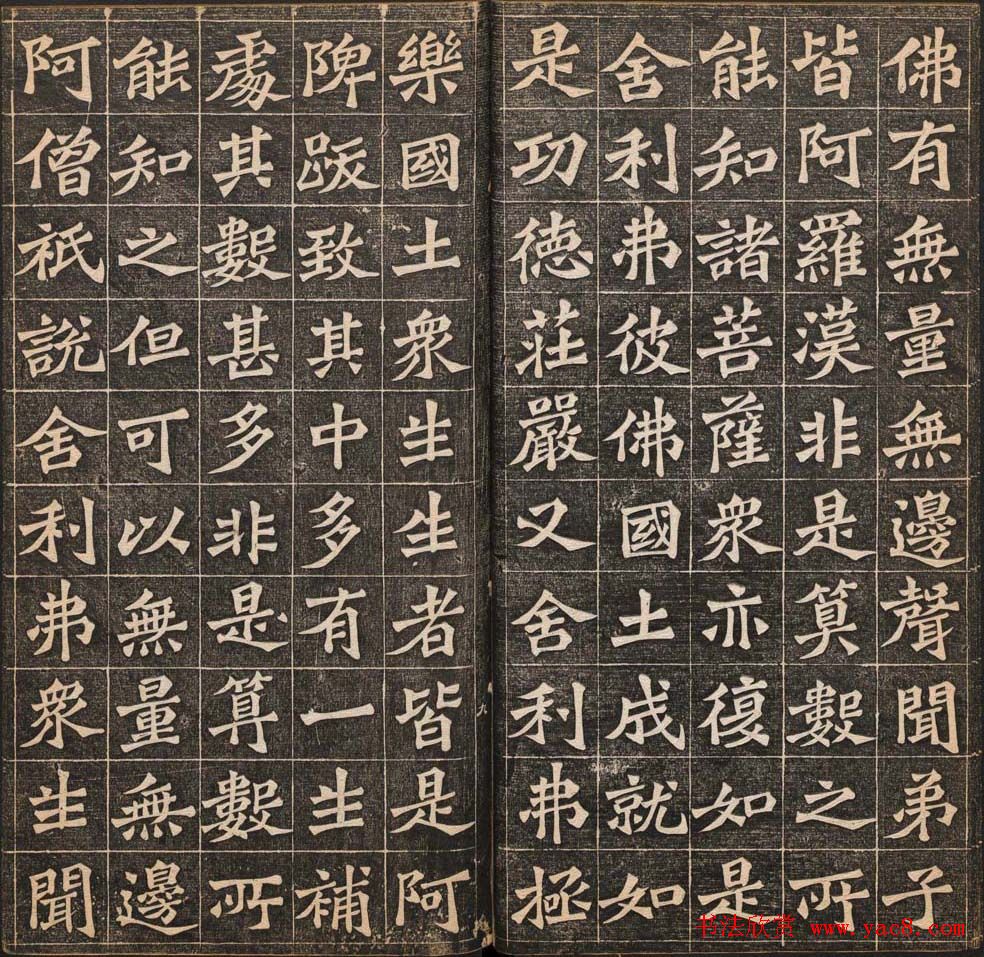 佛有無量無邊聲聞弟子
皆阿羅漢非是算數之所
能知諸菩薩衆亦復如是
舍利弗彼佛國土成就如
是功德莊嚴又舍利弗極
樂國土衆生生者皆是阿
陴跋致其中多有一生補
處其數甚多非是算數所
能知之但可以無量無邊
阿僧祇說舍利弗衆生聞
九
书法欣赏 www.yac8.com